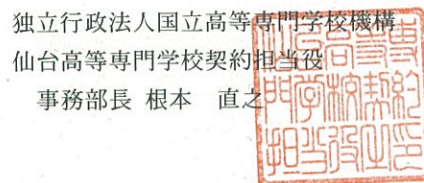 独立行政法人国立高等専門学校機構
仙台高等専門学校契約担当役
事務部長 根本 直之